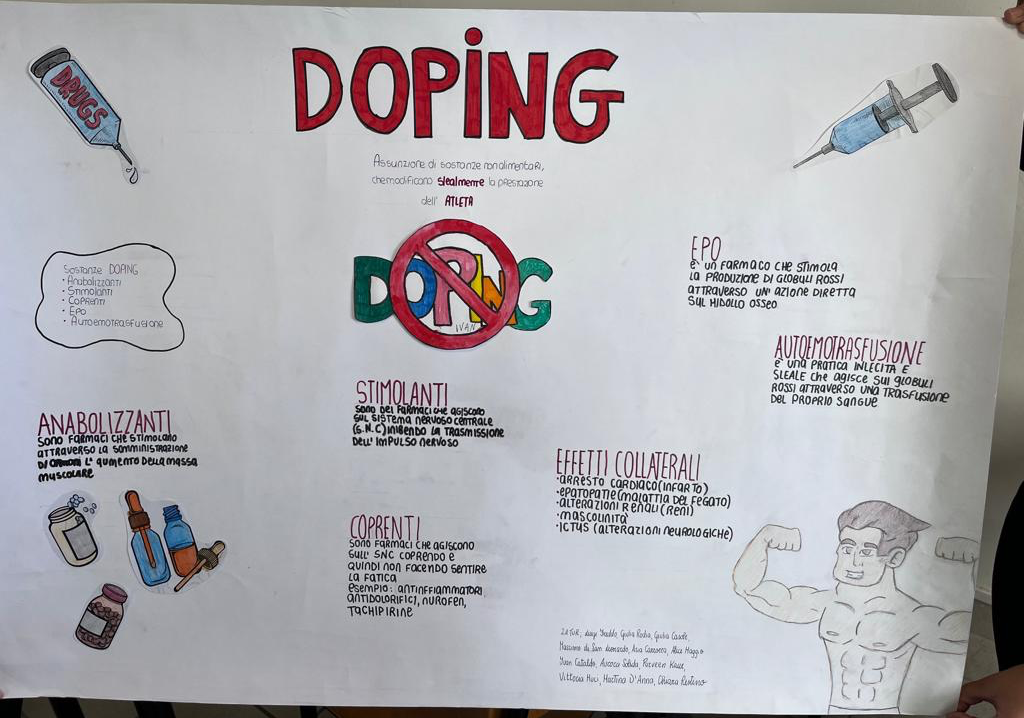 DRUGS
DOPING
Assunzione di sostanze non alimentari,
che modificano slealmente la prestazione
dell' ATLETA
DOPING
IVAN
Sostanze DOPING
• Anabolizzanti
• Stimolanti
• Coprenti
• Epo
• Autoemotrasfusione
EPO
È UN FARMACO CHE STIMOLA
LA PRODUZIONE DI GLOBULI ROSSI
ATTRAVERSO UN' AZIONE DIRETTA
SUL MIDOLLO OSSEO
AUTOEMOTRASFUSIONE
È UNA PRATICA INLECITA E
SLEALE CHE AGISCE SUI GLOBULI
ROSSI ATTRAVERSO UNA TRASFUSIONE
DEL PROPRIO SANGUE
STIMOLANTI
SONO DEI FARMACI CHE AGISCONO
SUL SISTEMA NERVOSO CENTRALE
(S.N.C) INIBENDO LA TRASMISSIONE
DELL' IMPULSO NERVOSO
ANABOLIZZANTI
SONO FARMACI CHE STIMOLANO
ATTRAVERSO LA SOMMINISTRAZIONE
DI ORMONI L' AUMENTO DELLA MASSA
MUSCOLARE
EFFETTI COLLATERALI
• ARRESTO CARDIACO (INFARTO)
• EPATOPATIE (MALATTIA DEL FEGATO)
• ALTERAZIONI RENALI (RENI)
• MASCOLINITÀ
• ICTUS (ALTERAZIONI NEUROLOGICHE)
COPRENTI
SONO FARMACI CHE AGISCONO
SULL' SNC COPRENDO E
QUINDI NON FACENDO SENTIRE
LA FATICA
ESEMPIO: ANTINFFIAMMATORI
ANTIDOLORIFICI, NUROFEN,
TACHIPIRINE
Giulia Rodia, Giulia Casole,
Massimo di San Leonardo, Asia Carrozza, Alice Maggio
Yvan Cataldo, Aurora Salida, Parveen Kaur,
Vittoria Muci, Martina D'Anna, Chiara Perlino